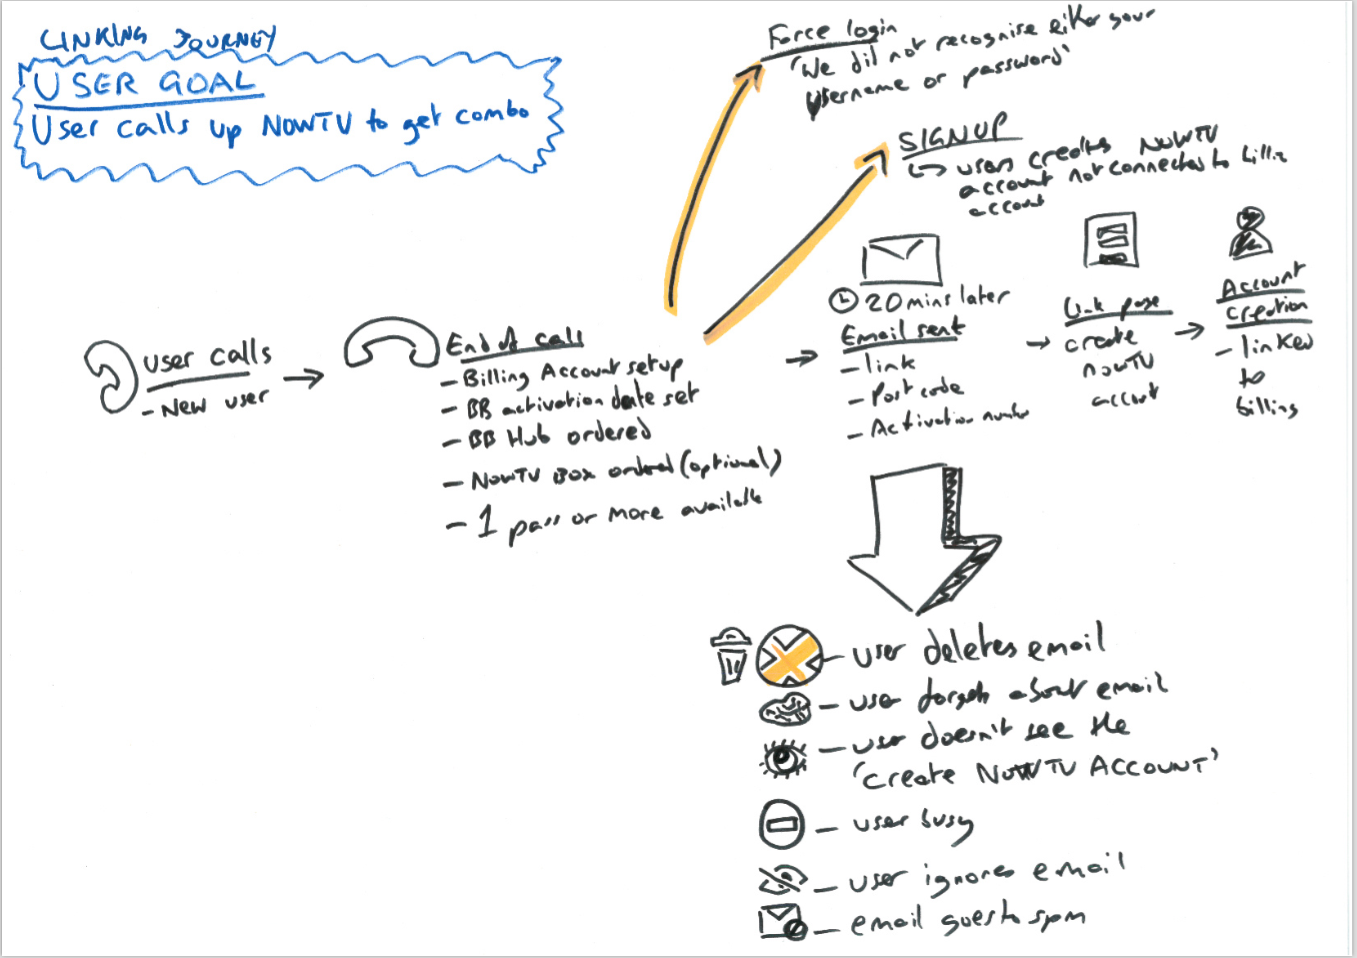 LINKING JOURNEY
USER GOAL
User calls up NOWTV to get combo
Force login
'We did not recognise either your
Username or password'
SIGNUP
users creates NOWTV
account not connected to billing
account
user calls
- New user
End of call
- Billing Account setup
- BB activation date set
- BB Hub ordered
- NowTV Box ordered (optional)
- 1 pass or more available
20 mins later
Email sent
- link
- Post code
- Activation number
Link page
create
nowTV
account
Account
creation
- linked
to
billing
- user deletes email
- user forgets about email
- user doesn't see the
'Create NOWTV ACCOUNT'
- user busy
- user ignores email
- email goes to spam